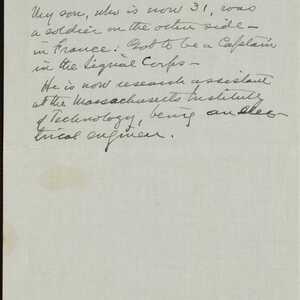 My son, who is now 31, was
a soldier on the other side -
in France. Got to be a Captain
in the Signal Corps -
He is now research assistant
at the Massachusetts Institute
of Technology, being an elec-
trical engineer.